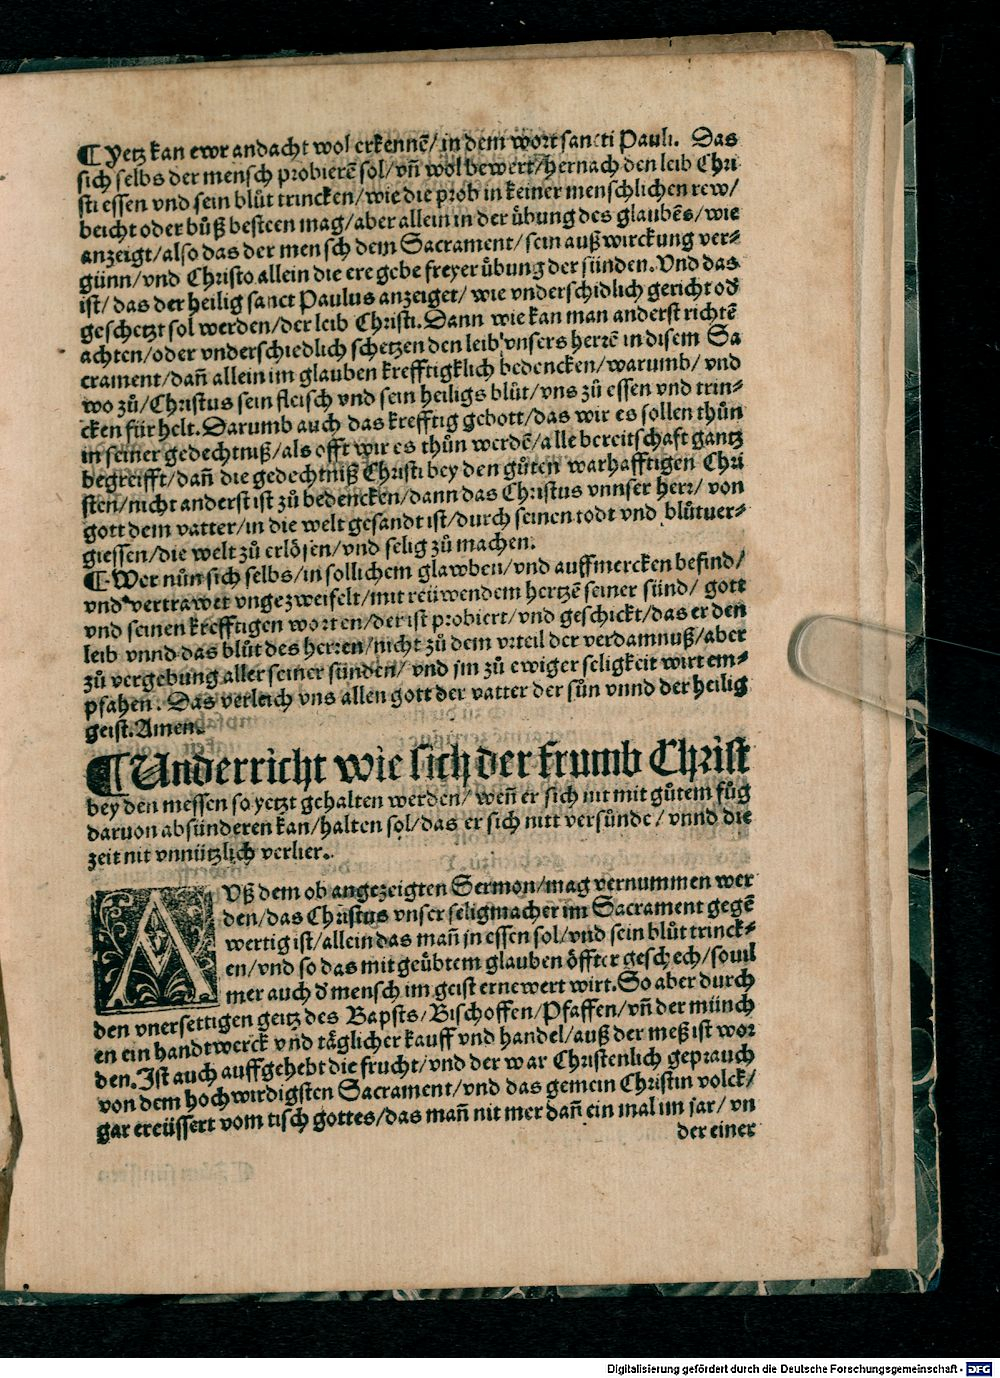 ¶ Yetz kan ewr andacht wol erkennē/ in dem wort sancti Pauli. Das
sich selbs der mensch probierē sol/ vn̄ wol bewert/ hernach den leib Chri
sti essen vnd sein blůt trincken/ wie die prob in keiner menschlichen rew/
beicht oder bůß besteen mag/ aber allein in der ůbung des glaubēs/ wie
anzeigt/ also das der mensch dem Sacrament/ sein außwirckung ver⸗
günn/ vnd Christo allein die ere gebe freyer ůbung der sünden. Vnd das
ist/ das der heilig sanct Paulus anzeiget/ wie vnderschidlich gericht od
geschetzt sol werden/ der leib Christi. Dann wie kan man anderst richtē
achten/ oder vnderschiedlich schetzen den leib vnsers herrē in disem Sa
crament/ dan̄ allein im glauben krefftigklich bedencken/ warumb/ vnd
wo zů/ Christus sein fleisch vnd sein heiligs blůt/ vns zů essen vnd trin⸗
cken für helt. Darumb auch das krefftig gebott/ das wir es sollen thůn
in seiner gedechtniß/ als offt wir es thůn werdē/ alle bereitschaft gantz
begreifft/ dan̄ die gedechtniß Christi bey den gůten warhafftigen Chri
sten/ nicht anderst ist zů bedencken/ dann das Christus vnnser herr/ von
gott dem vatter/ in die welt gesandt ist/ durch seinen todt vnd blůtuer⸗
giessen/ die welt zů erlösen/ vnd selig zů machen.
¶ Wer nůn sich selbs/ in sollichem glawben/ vnd auffmercken befind/
vnd vertrawet vngezweifelt/ mit reüwendem hertzē seiner sünd/ gott
vnd seinen krefftigen worten/ der ist probiert/ vnd geschickt/ das er den
leib vnnd das blůt des herren/ nicht zů dem vrteil der verdamnuß/ aber
zů vergebung aller seiner sünden/ vnd jm zů ewiger seligkeit wirt em⸗
pfahen. Das verleich vns allen gott der vatter der sůn vnnd der heilig
geist. Amen.
¶ Underricht wie sich der frumb Christ
bey den messen so yetzt gehalten werden/ wen̄ er sich nit mit gůtem fůg
daruon absünderen kan/ halten sol/ das er sich nitt versünde/ vnnd die
zeit nit vnnützlich verlier.
AVß dem ob angezeigten Sermon/ mag vernummen wer
den/ das Christus vnser seligmacher im Sacrament gegē
wertig ist/ allein das man̄ jn essen sol/ vnd sein blůt trinck⸗
en/ vnd so das mit geůbtem glauben öffter geschech/ souil
mer auch d' mensch im geist ernewert wirt. So aber durch
den vnersettigen geitz des Bapsts/ Bischoffen/ Pfaffen/ vn̄ der münch
en ein handtwerck vnd täglicher kauff vnd handel/ auß der meß ist wor
den. Ist auch auffgehebt die frucht/ vnd der war Christenlich geprauch
von dem hochwirdigsten Sacrament/ vnd das gemein Christin volck/
gar ereüssert vom tisch gottes/ das man̄ nit mer dan̄ ein mal im jar/ vn
der einer
Digitalisierung gefördert durch die Deutsche Forschungsgemeinschaft - DFG